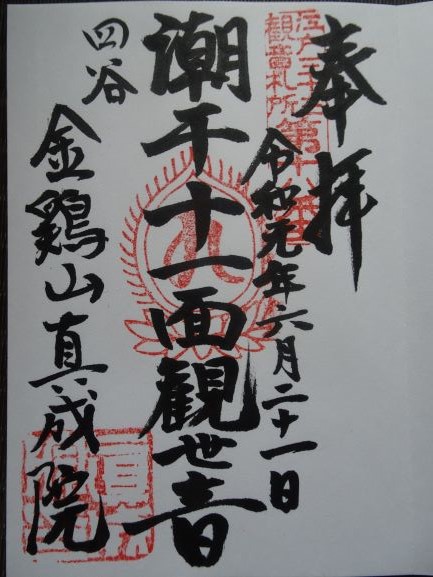 奉拝
江戸三十三
観音札所
第十八番
令和元年六月二十一日
潮干十一面観世音
四谷
金鶏山真成院